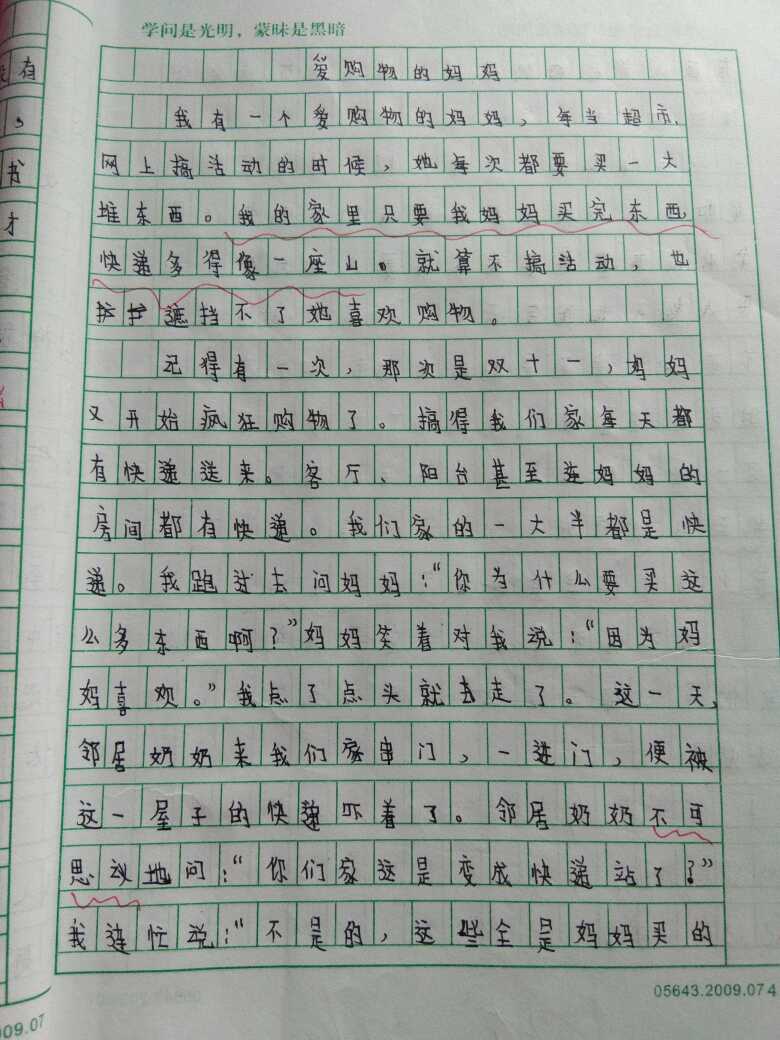 学问是光明，蒙昧是黑暗
爱购物的妈妈
我有一个爱购物的妈妈，每当超市、
网上搞活动的时候，她每次都要买一大
堆东西。我的家里只要我妈妈买完东西
快递多得像一座山。就算不搞活动，也
遮挡不了她喜欢购物。
记得有一次，那次是双十一，妈妈
又开始疯狂购物了。搞得我们家每天都
有快递送来。客厅、阳台甚至连妈妈的
房间都有快递。我们家的一大半都是快
递。我跑过去问妈妈：“你为什么要买这
么多东西啊？”妈妈笑着对我说：“因为妈
妈喜欢。”我点了点头就去走了。这一天，
邻居奶奶来我们家串门，一进门，便被
这一屋子的快递吓着了。邻居奶奶不可
思议地问：“你们家这是变成快递站了？”
我连忙说：“不是的，这些全是妈妈买的
05643.2009.074
有
，
书
才
009.07